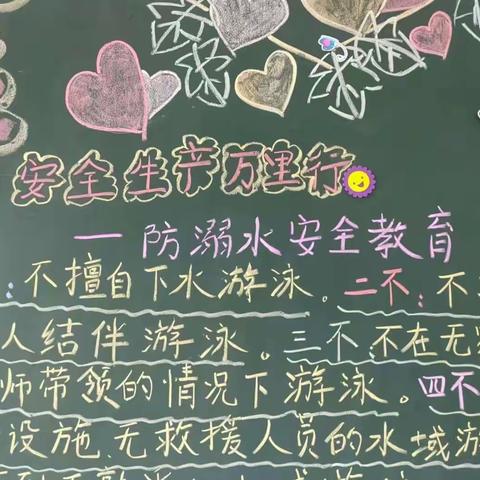 安全生产万里行
一防溺水安全教育
:不擅自下水游泳。二不:不
人结伴游泳。三不:不在无
师带领的情况下游泳。四不
设施、无救援人员的水域游